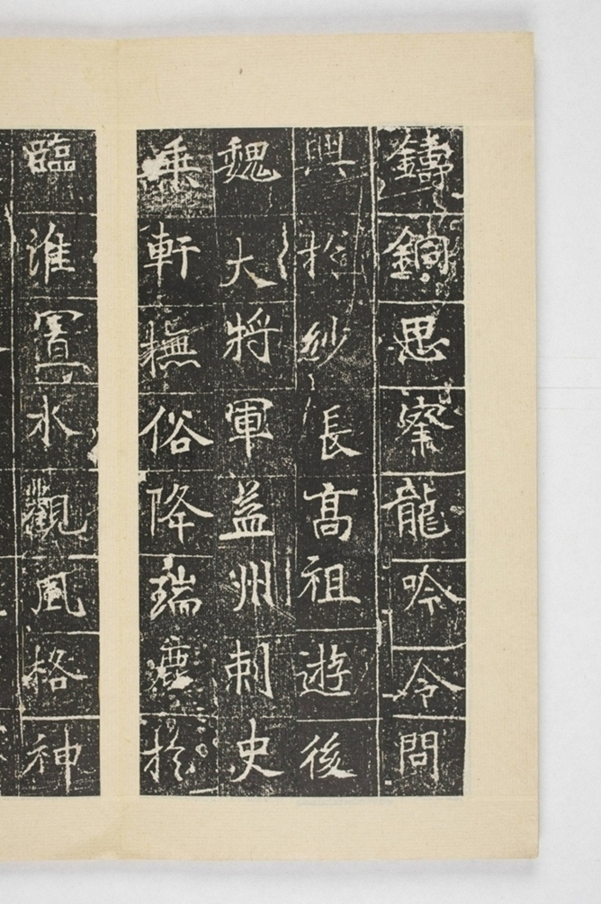 鑄銅思察龍吟令問
興於紗長高祖遊後
魏大將軍益州刺史
乗軒撫俗降瑞鹿於
臨淮置水觀風格神